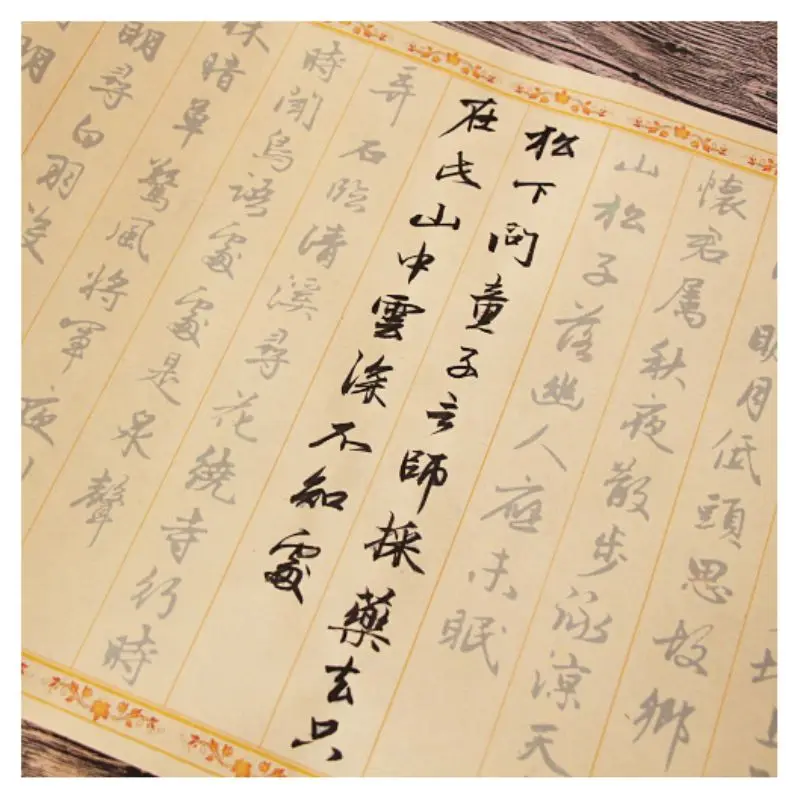 明月低頭思故鄉
懷君属秋夜散步詠涼天
山松子落幽人應未眠
松下問童子言師採藥去只
在此山中雲深不知處
弄石臨清溪尋花繞寺行時
時聞鳥語處處是泉聲
林暗草驚風將軍夜
明尋白羽没
明